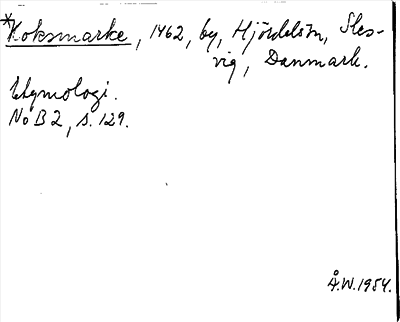 *Koksmarke, 1462, by, Hjördelsön, Sles-
vig, Danmark.
Etymologi.
NoB 2, s. 129.
Å.W. 1954.